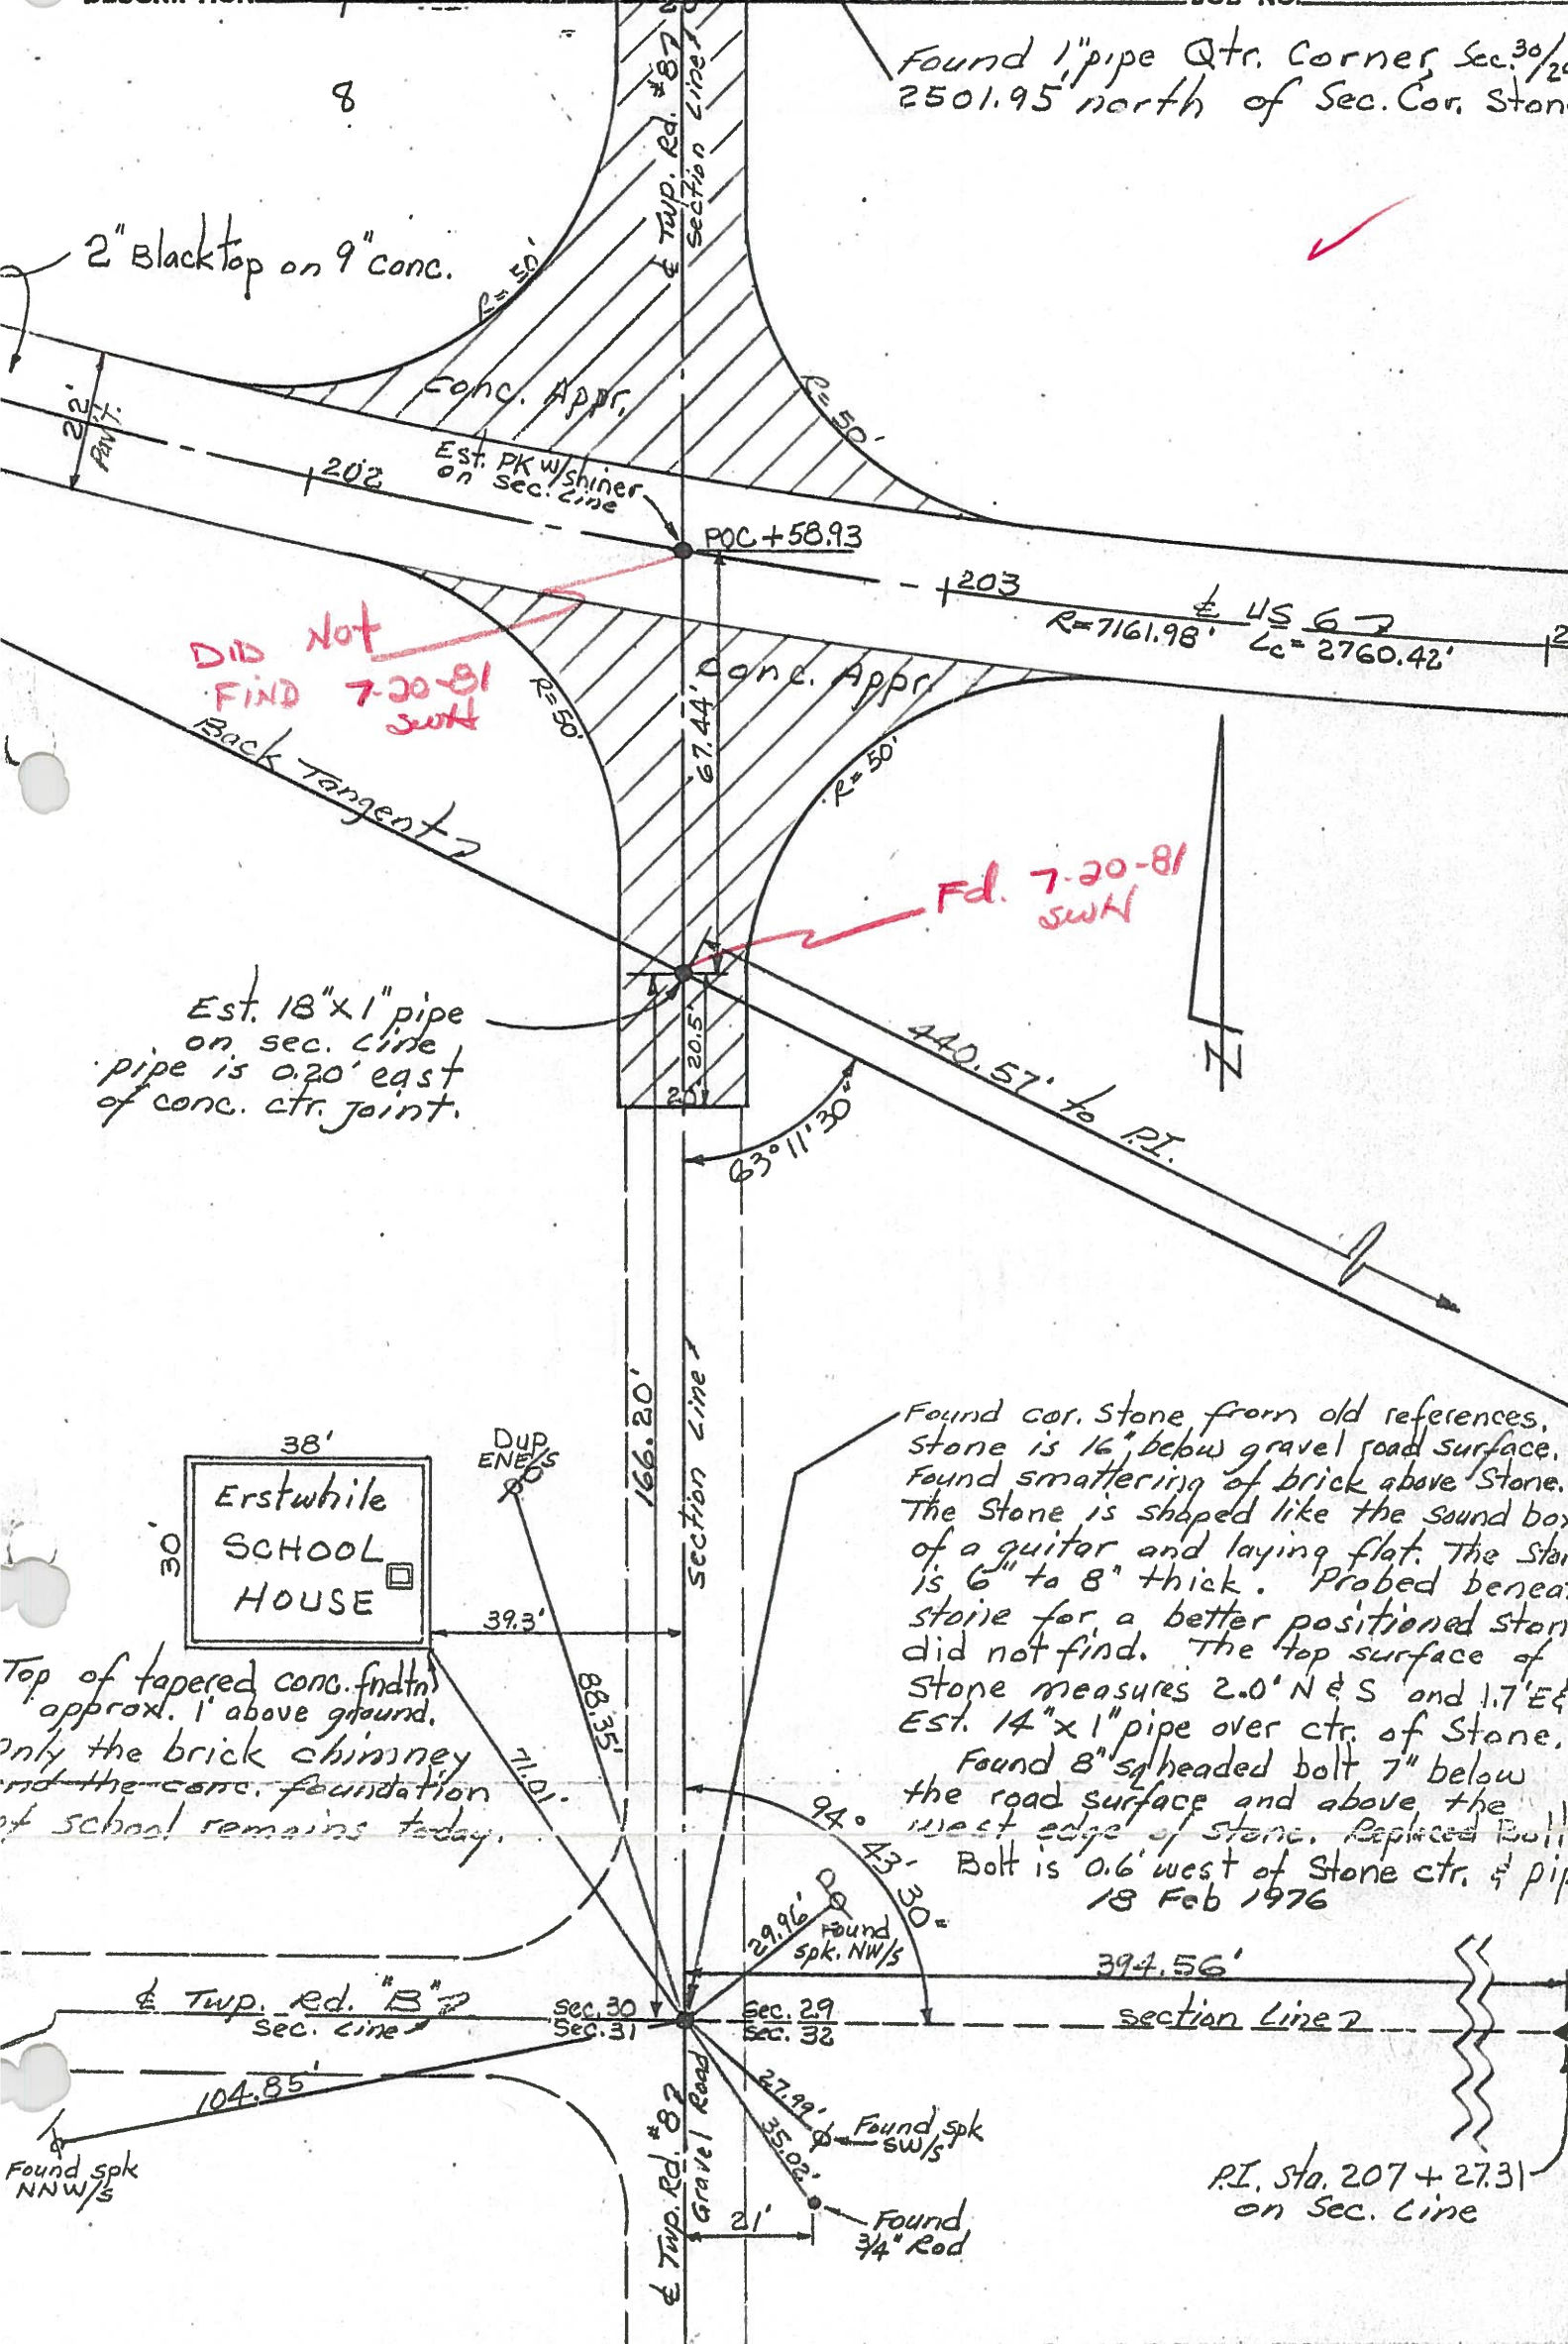 Found 1" pipe Qtr. Corner, Sec. 30/
2501.95' north of Sec. Cor. Ston
8
₵ Twp. Rd. #87
Section Line
2" Blacktop on 9" conc.
R=50'
Conc. Appr.
R=50'
22'
Pav't.
202
Est. PK w/shiner
on sec. Line
POC+58.93
203
₵ US 6
R=7161.98' Lc=2760.42'
2
DID Not
FIND 7-20-81
SWH
R=50'
Conc. Appr.
67.44'
R=50'
Back Tangent
Fd. 7-20-81
SWH
Est. 18"x1" pipe
on sec. Line
pipe is 0.20' east
of conc. ctr. joint.
20.5'
20'
N
440.57' to P.I.
63°11'30"
166.20'
section Line
38'
30'
Erstwhile
SCHOOL
HOUSE
Dup
ENE/S
39.3'
88.35'
71.01'
Top of tapered conc. fndtn
approx. 1' above ground.
only the brick chimney
and the conc. foundation
of school remains today.
Found cor. Stone from old references.
Stone is 16" below gravel road surface.
Found smattering of brick above Stone.
The Stone is shaped like the sound box
of a guitar and laying flat. The Ston
is 6" to 8" thick. Probed benea
stone for a better positioned Ston
did not find. The top surface of
Stone measures 2.0' N & S and 1.7' E &
Est. 14"x1" pipe over ctr. of Stone.
Found 8" sq headed bolt 7" below
the road surface and above the
west edge of stone. Replaced Bolt
Bolt is 0.6' west of Stone ctr. & pip
18 Feb 1976
94° 43' 30"
29.96'
Found
spk. NW/S
394.56'
₵ Twp. Rd. "B"
Sec. Line
Sec. 30
Sec. 31
Sec. 29
Sec. 32
section Line
104.85'
Found spk
NNW/S
27.99'
Found spk
SW/S
35.02'
₵ Twp. Rd. #87
Gravel Road
21'
Found
3/4" Rod
P.I. Sta. 207 + 27.31
on Sec. Line